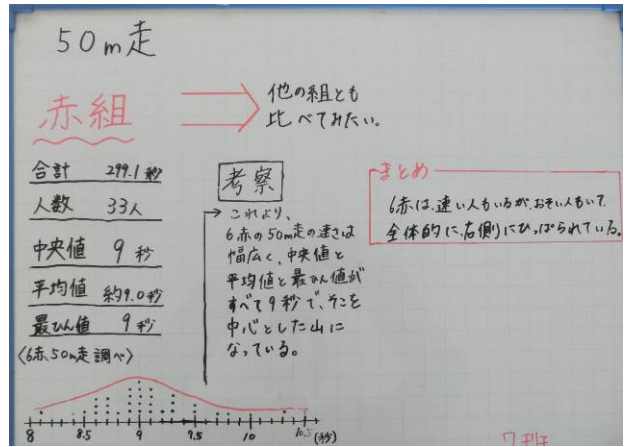 50m走
赤組
他の組とも
比べてみたい。
合計 299.1秒
人数 33人
中央値 9秒
平均値 約9.0秒
最ひん値 9秒
〈6赤、50m走調べ〉
考察
これより、
6赤の50m走の速さは
幅広く、中央値と
平均値と最ひん値が
すべて9秒で、そこを
中心とした山に
なっている。
まとめ
6赤は、速い人もいるが、おそい人もいて、
全体的に、右側にひっぱられている。
8 8.5 9 9.5 10 10.5 (秒)
7班